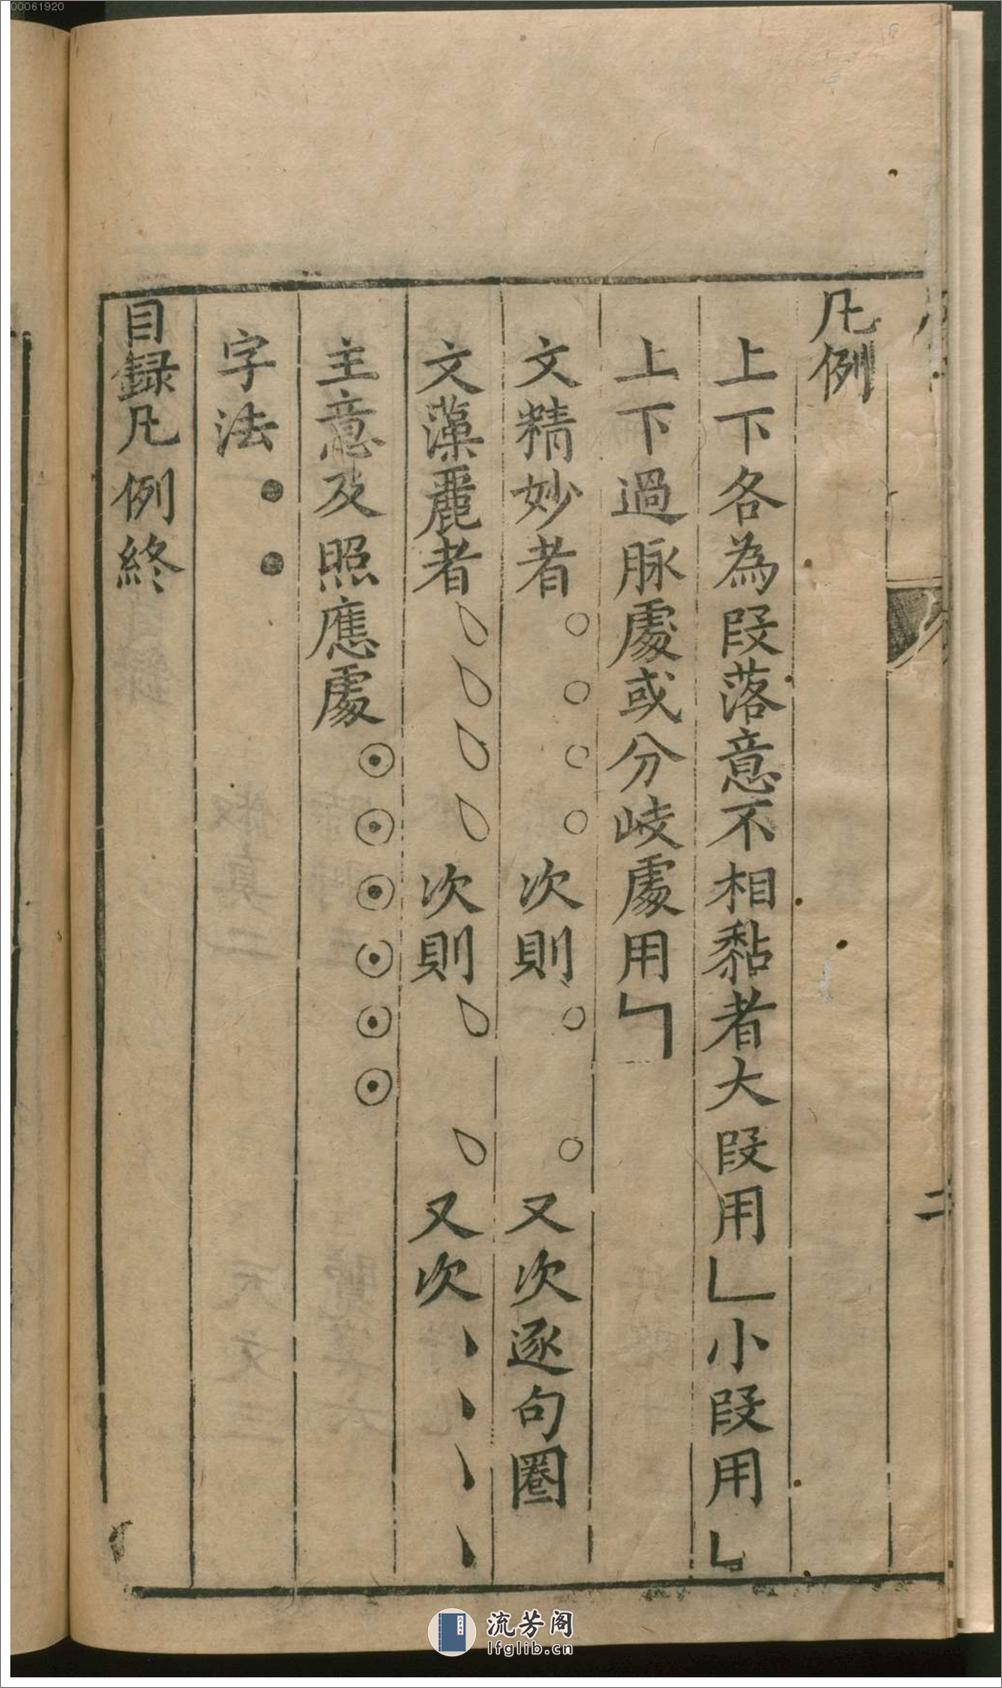 00061920
凡例
上下各為段落意不相黏者大段用﹂小段用﹂
上下過脉處或分岐處用﹁
文精妙者○○○○次則○ ○又次逐句圈
文藻麗者﹅﹅﹅﹅次則﹅ ﹅又次丶丶丶丶
主意及照應處⊙⊙⊙⊙⊙⊙
字法●●
目録凡例終
二
流芳阁
lfglib.cn